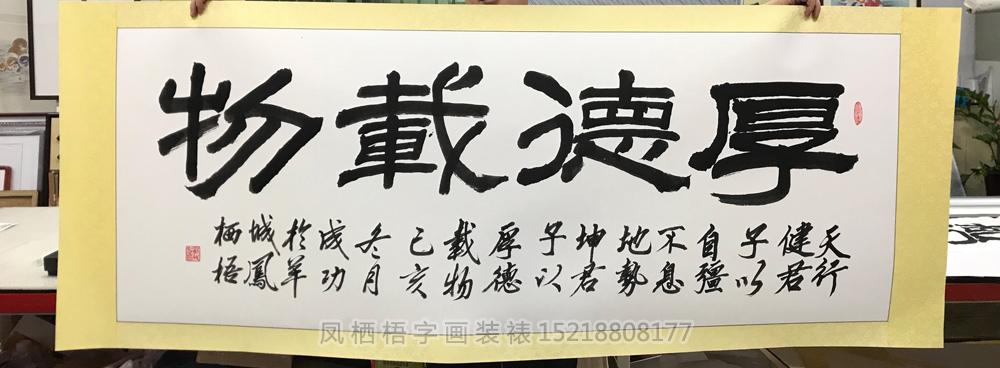 厚德載物
天行
健君
子以
自彊
不息
地勢
坤君
子以
厚德
載物
己亥
冬月
成功
於羊
城鳳
栖梧
凤栖梧字画装裱15218808177